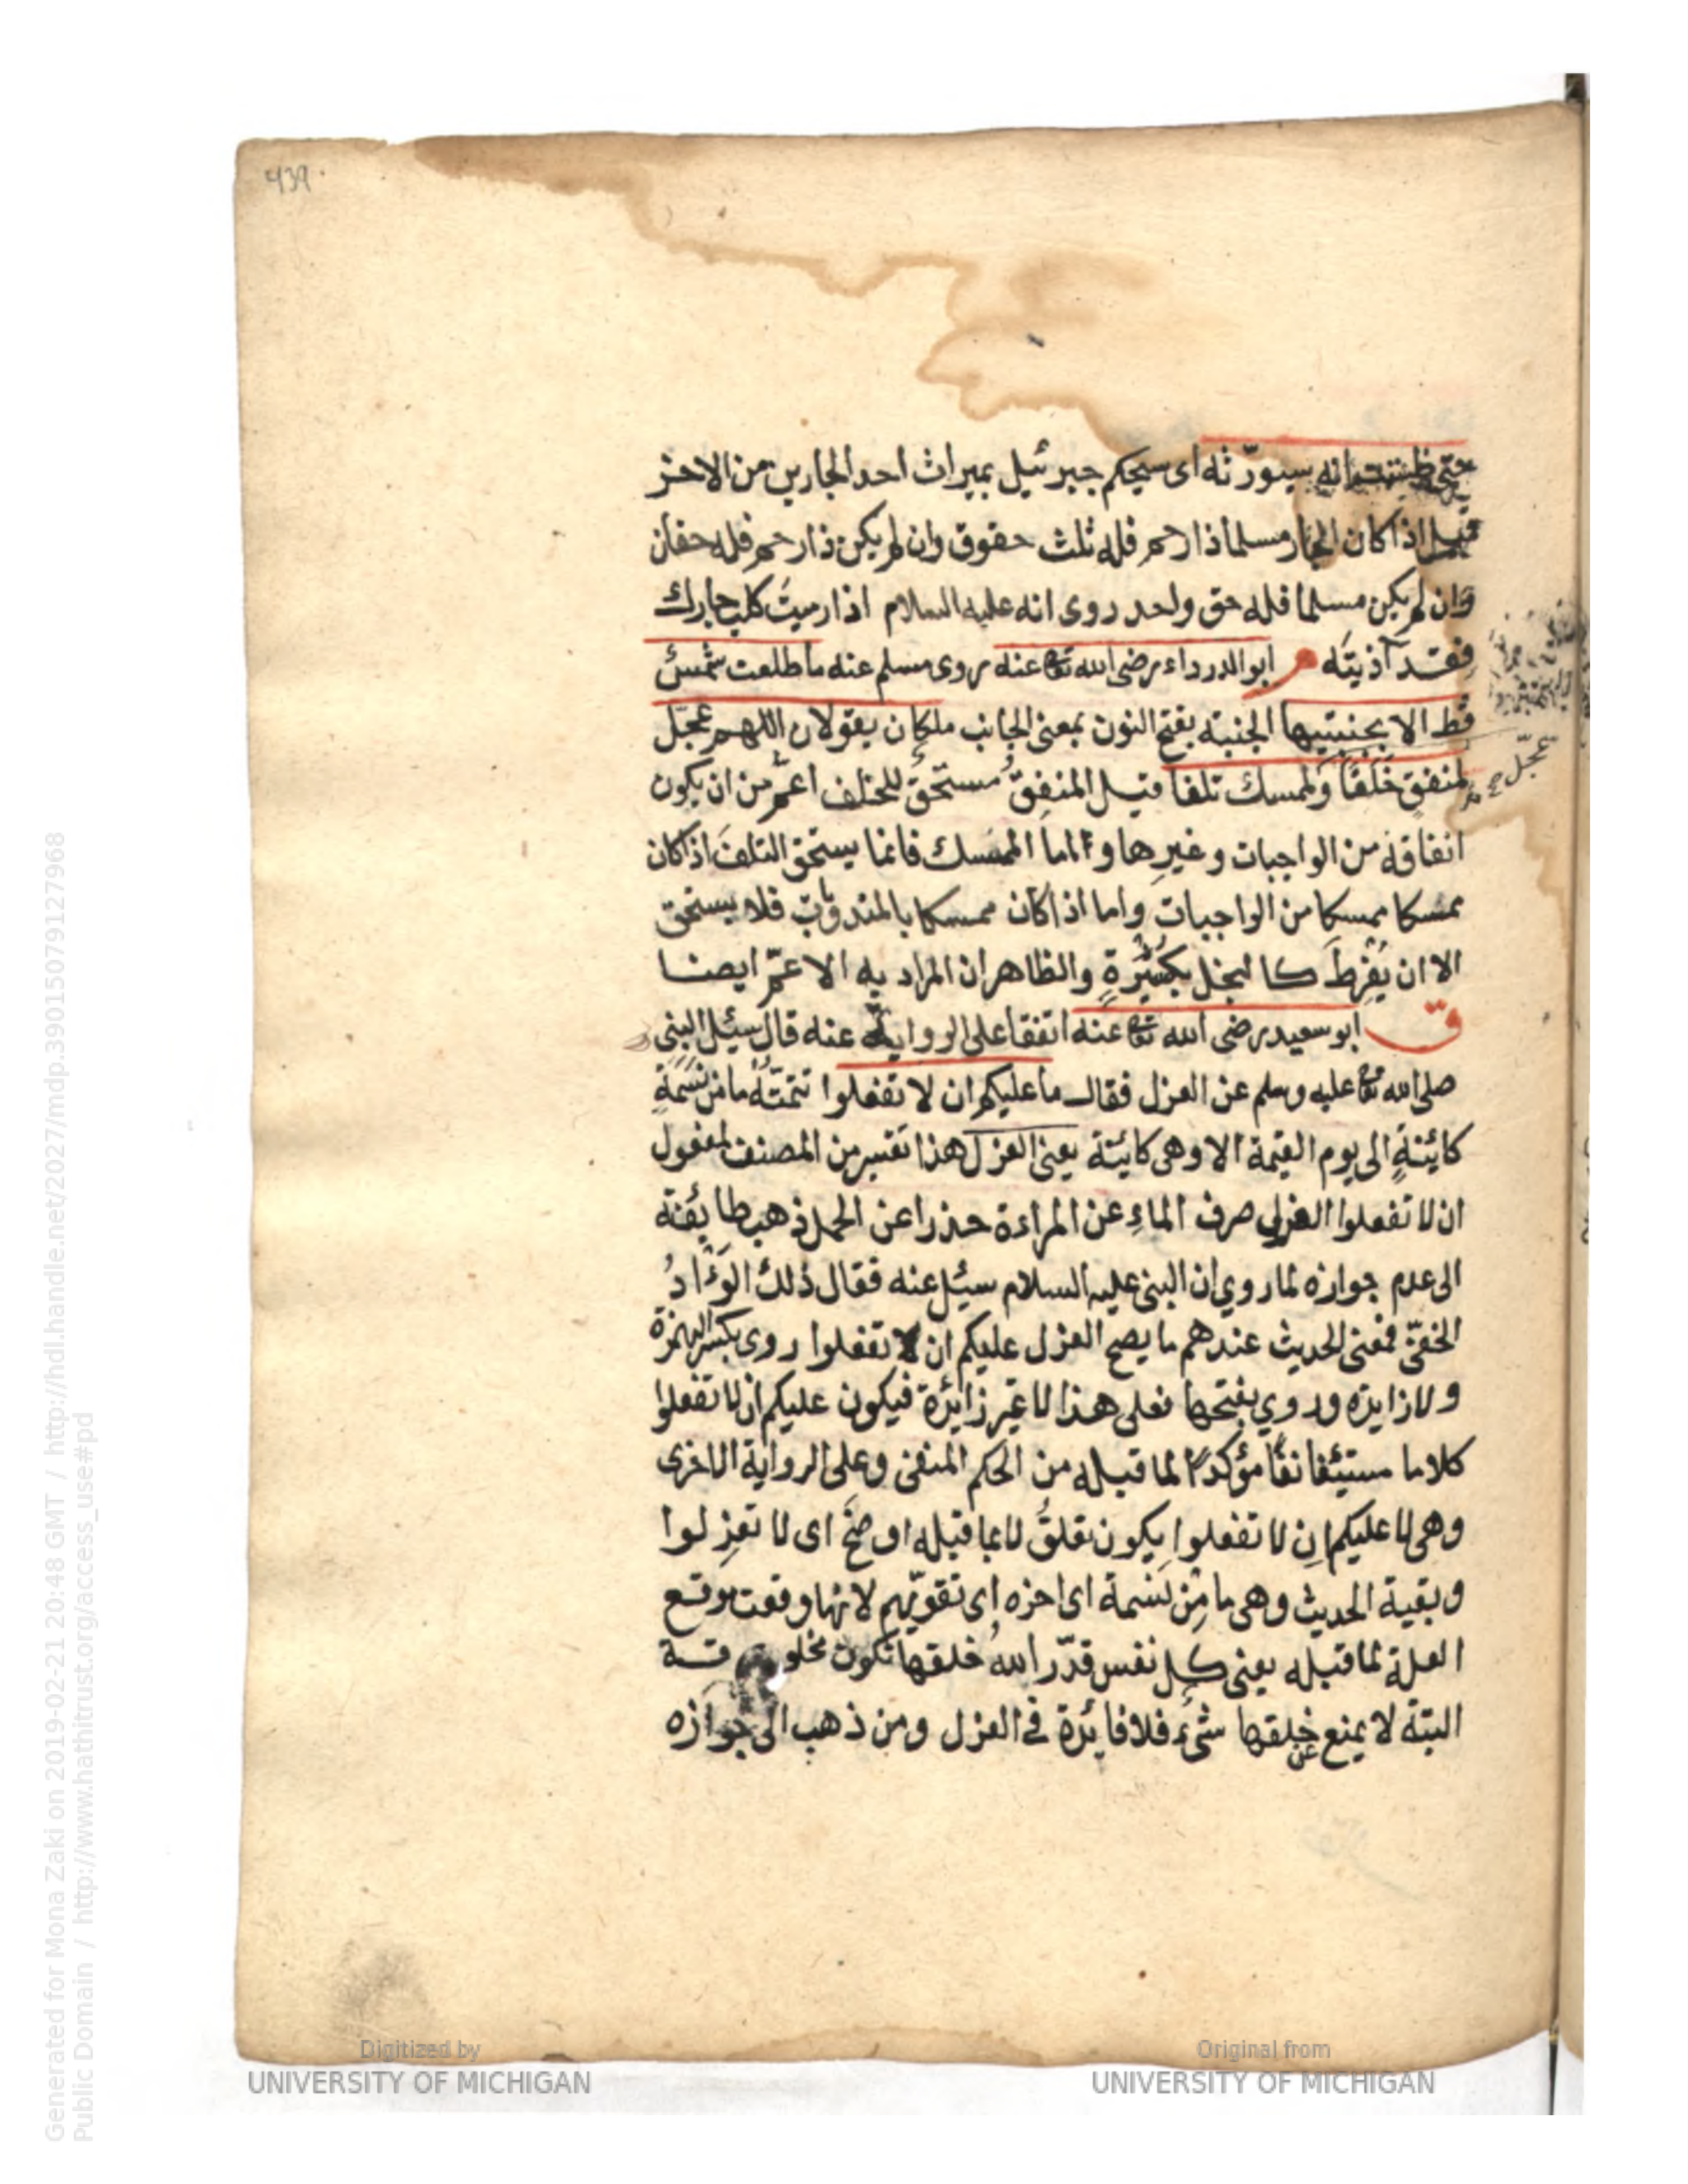 439
حتى ظننت انه سيورّثه اى سيحكم جبرئيل بميراث احد الجارين من الاخر
قيل اذا كان الجار مسلما ذا رحم فله ثلث حقوق وان لم يكن ذا رحم فله حقان
وان لم يكن مسلما فله حق واحد روى انه عليه السلام اذا رميتَ كلب جارك
فقد آذيتَه م ابو الدرداء رضى الله تعا عنه روى مسلم عنه ما طلعت شمسٌ
قط الا بجنبتيها الجنبة بفتح النون بمعنى الجانب ملكان يقولان اللهم عجّل
لمنفقٍ خَلَفًا وَلممسك تلفا قيل المنفِقُ مستحقٌ للخلف اعمّ من ان يكون
انفاقه من الواجبات وغيرِها واما الممسك فانما يستحق التلفَ اذا كان
ممسكا ممسكا من الواجبات واما اذا كان ممسكا بالمندوبات فلا يستحق
الا ان يُفْرِطَ كالبخل بكَثِيْرَةٍ والظاهر ان المراد به الاعمّ ايضا
ق ابو سعيد رضى الله تعا عنه اتفقا على الرواية عنه قال سئل النبى
صلى الله تعا عليه وسلم عن العزل فقال ما عليكم ان لا تفعلوا تتمّتُهُ ما من نَسَمَةٍ
كائنةٍ الى يوم القيمة الا وهى كائنة يعنى العزل هذا تفسير من المصنف لمفعول
ان لا تفعلوا العزل صرف الماءِ عن المراءة حذرا عن الحمل ذهب طائفة
الى عدم جوازه لما روي ان النبى عليه السلام سئل عنه فقال ذلك الوَءْادُ
الخفىّ فمعنى الحديث عندهم ما يصح العزل عليكم ان لا تفعلوا روى بكسر الهمزة
ولا زايدة وروي بفتحها فعلى هذا لا غير زائدة فيكون عليكم ان لا تفعلوا
كلاما مستئفا نفًا مؤكدًا لما قبله من الحكم المنفى وعلى الرواية الاخرى
وهى لا عليكم اِن لا تفعلوا يكون تعلقُ لا بما قبله اوضحَ اى لا تعزِلوا
وبقية الحديث وهى ما مِن نسمة اى اخره اى تقويهم لانها وقعت موقع
العلة لما قبله يعنى كل نفس قدّر اللهُ خلقها تكون مخلوقة
البتة لا يمنع عن خلقها شىء فلا فائدة فى العزل ومن ذهب الى جوازه
عجّل صح
Generated for Mona Zaki on 2019-02-21 20:48 GMT / http://hdl.handle.net/2027/mdp.39015079127968
Public Domain / http://www.hathitrust.org/access_use#pd
Digitized by
UNIVERSITY OF MICHIGAN
Original from
UNIVERSITY OF MICHIGAN